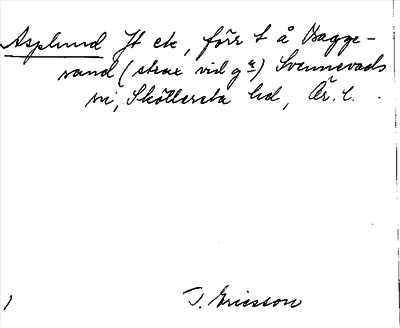 Asplund Jt ek, förr t å Bagge-
sand (strax vid gn) Svennevads
sn, Sköllersta hd, Ör. l.
J. Ericsson